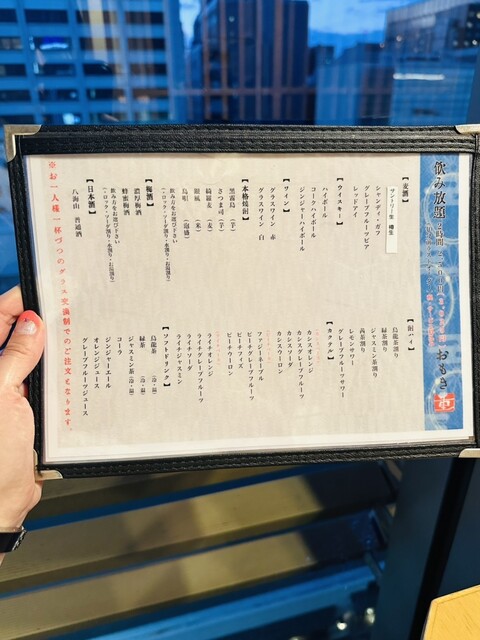 飲み放題
おもき
【麦酒】
サントリー生 樽生
シャンディ・ガフ
グレープフルーツビア
レッドアイ
【ウイスキー】
ハイボール
コークハイボール
ジンジャーハイボール
【ワイン】
グラスワイン 赤
グラスワイン 白
【本格焼酎】
黒霧島 (芋)
さつま司 (芋)
綾羅 (麦)
銀風 (米)
島唄 (泡盛)
飲み方をお選び下さい
・ロック・ソーダ割り・水割り・お湯割り
【梅酒】
濃厚梅酒
蜂蜜梅酒
飲み方をお選び下さい
・ロック・ソーダ割り・水割り・お湯割り
【日本酒】
八海山 普通酒
【酎ハイ】
烏龍茶割り
ジャスミン茶割り
緑茶割り
レモンサワー
グレープフルーツサワー
【カクテル】
カシスオレンジ
カシスグレープフルーツ
カシスソーダ
カシスウーロン
ファジーネーブル
ピーチグレープフルーツ
ピーチフィズ
ピーチウーロン
ライチオレンジ
ライチグレープフルーツ
ライチソーダ
ライチジャスミン
【ソフトドリンク】
烏龍茶 (冷・温)
緑茶 (冷・温)
ジャスミン茶 (冷・温)
コーラ
ジンジャーエール
オレンジジュース
グレープフルーツジュース
※お一人様一杯づつのグラス交換制でのご注文となります。